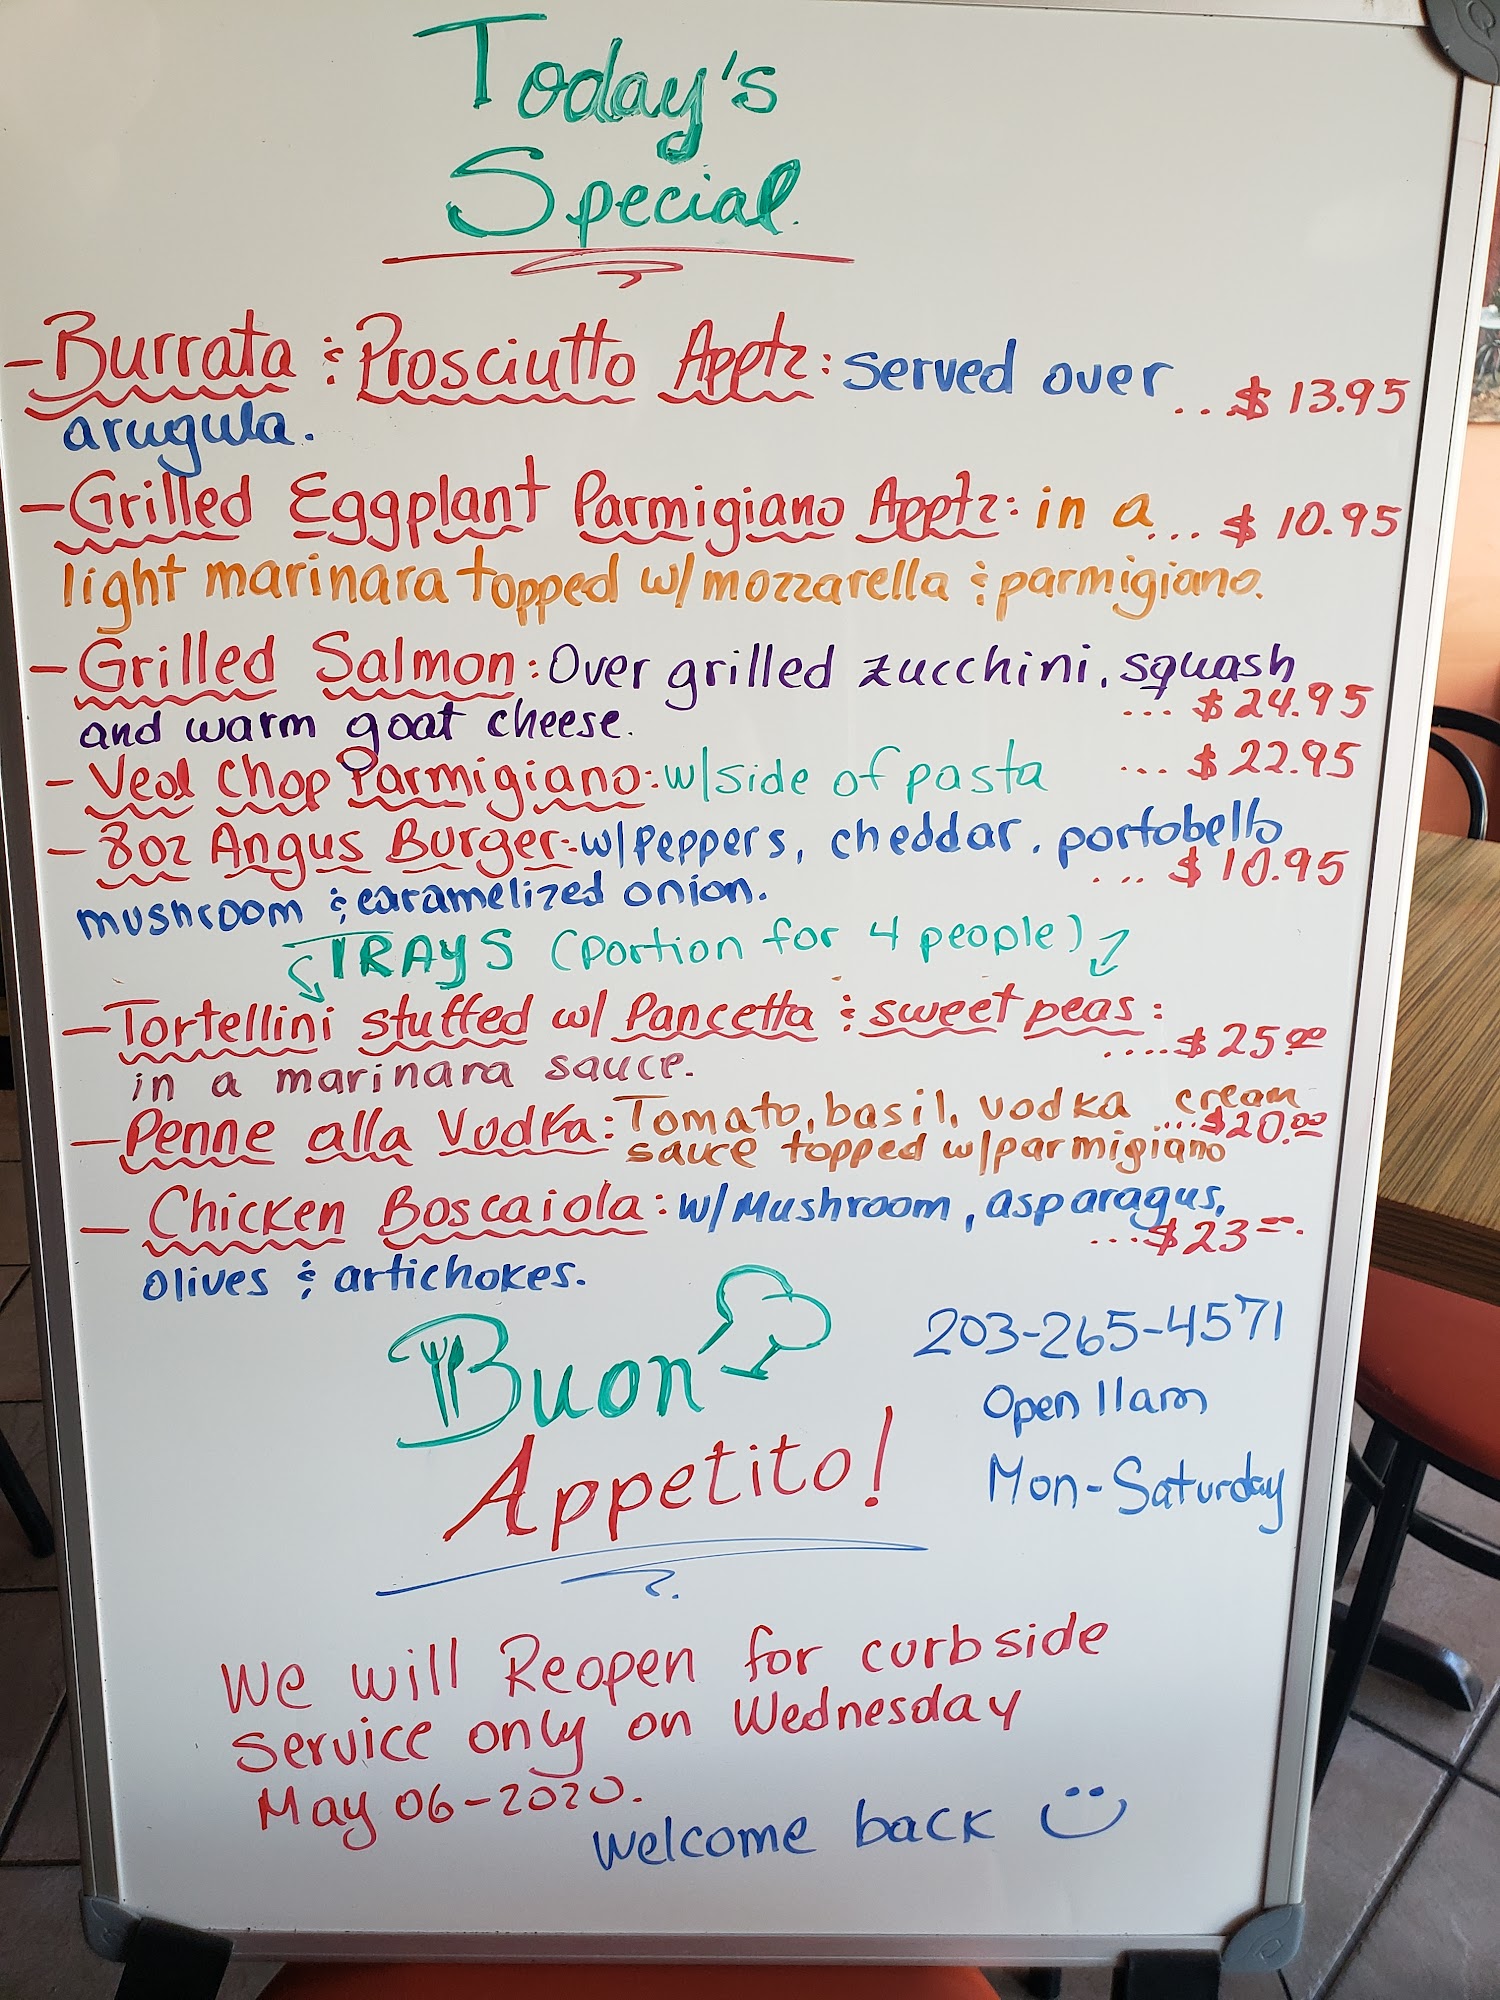 Today's
Special.
- Burrata & Prosciutto Apptz: Served over
arugula. ...$ 13.95
- Grilled Eggplant Parmigiano Apptz: in a ... $ 10.95
light marinara topped w/mozzarella & parmigiano.
- Grilled Salmon: Over grilled zucchini, squash
and warm goat cheese. ... $ 24.95
- Veal Chop Parmigiano: w/side of pasta ... $ 22.95
- 8oz Angus Burger: w/Peppers, cheddar, portobello
mushroom & caramelized onion. ... $ 10.95
TRAYS (Portion for 4 people)
- Tortellini stuffed w/ Pancetta & sweet peas:
in a marinara sauce. ....$ 25.00
- Penne alla Vodka: Tomato, basil, vodka cream
sauce topped w/parmigiano ....$20.00
- Chicken Boscaiola: w/Mushroom, asparagus,
olives & artichokes. ...$23=.
Buon
Appetito!
203-265-4571
Open 11am
Mon-Saturday
We will Reopen for curbside
service only on Wednesday
May 06-2020.
Welcome back